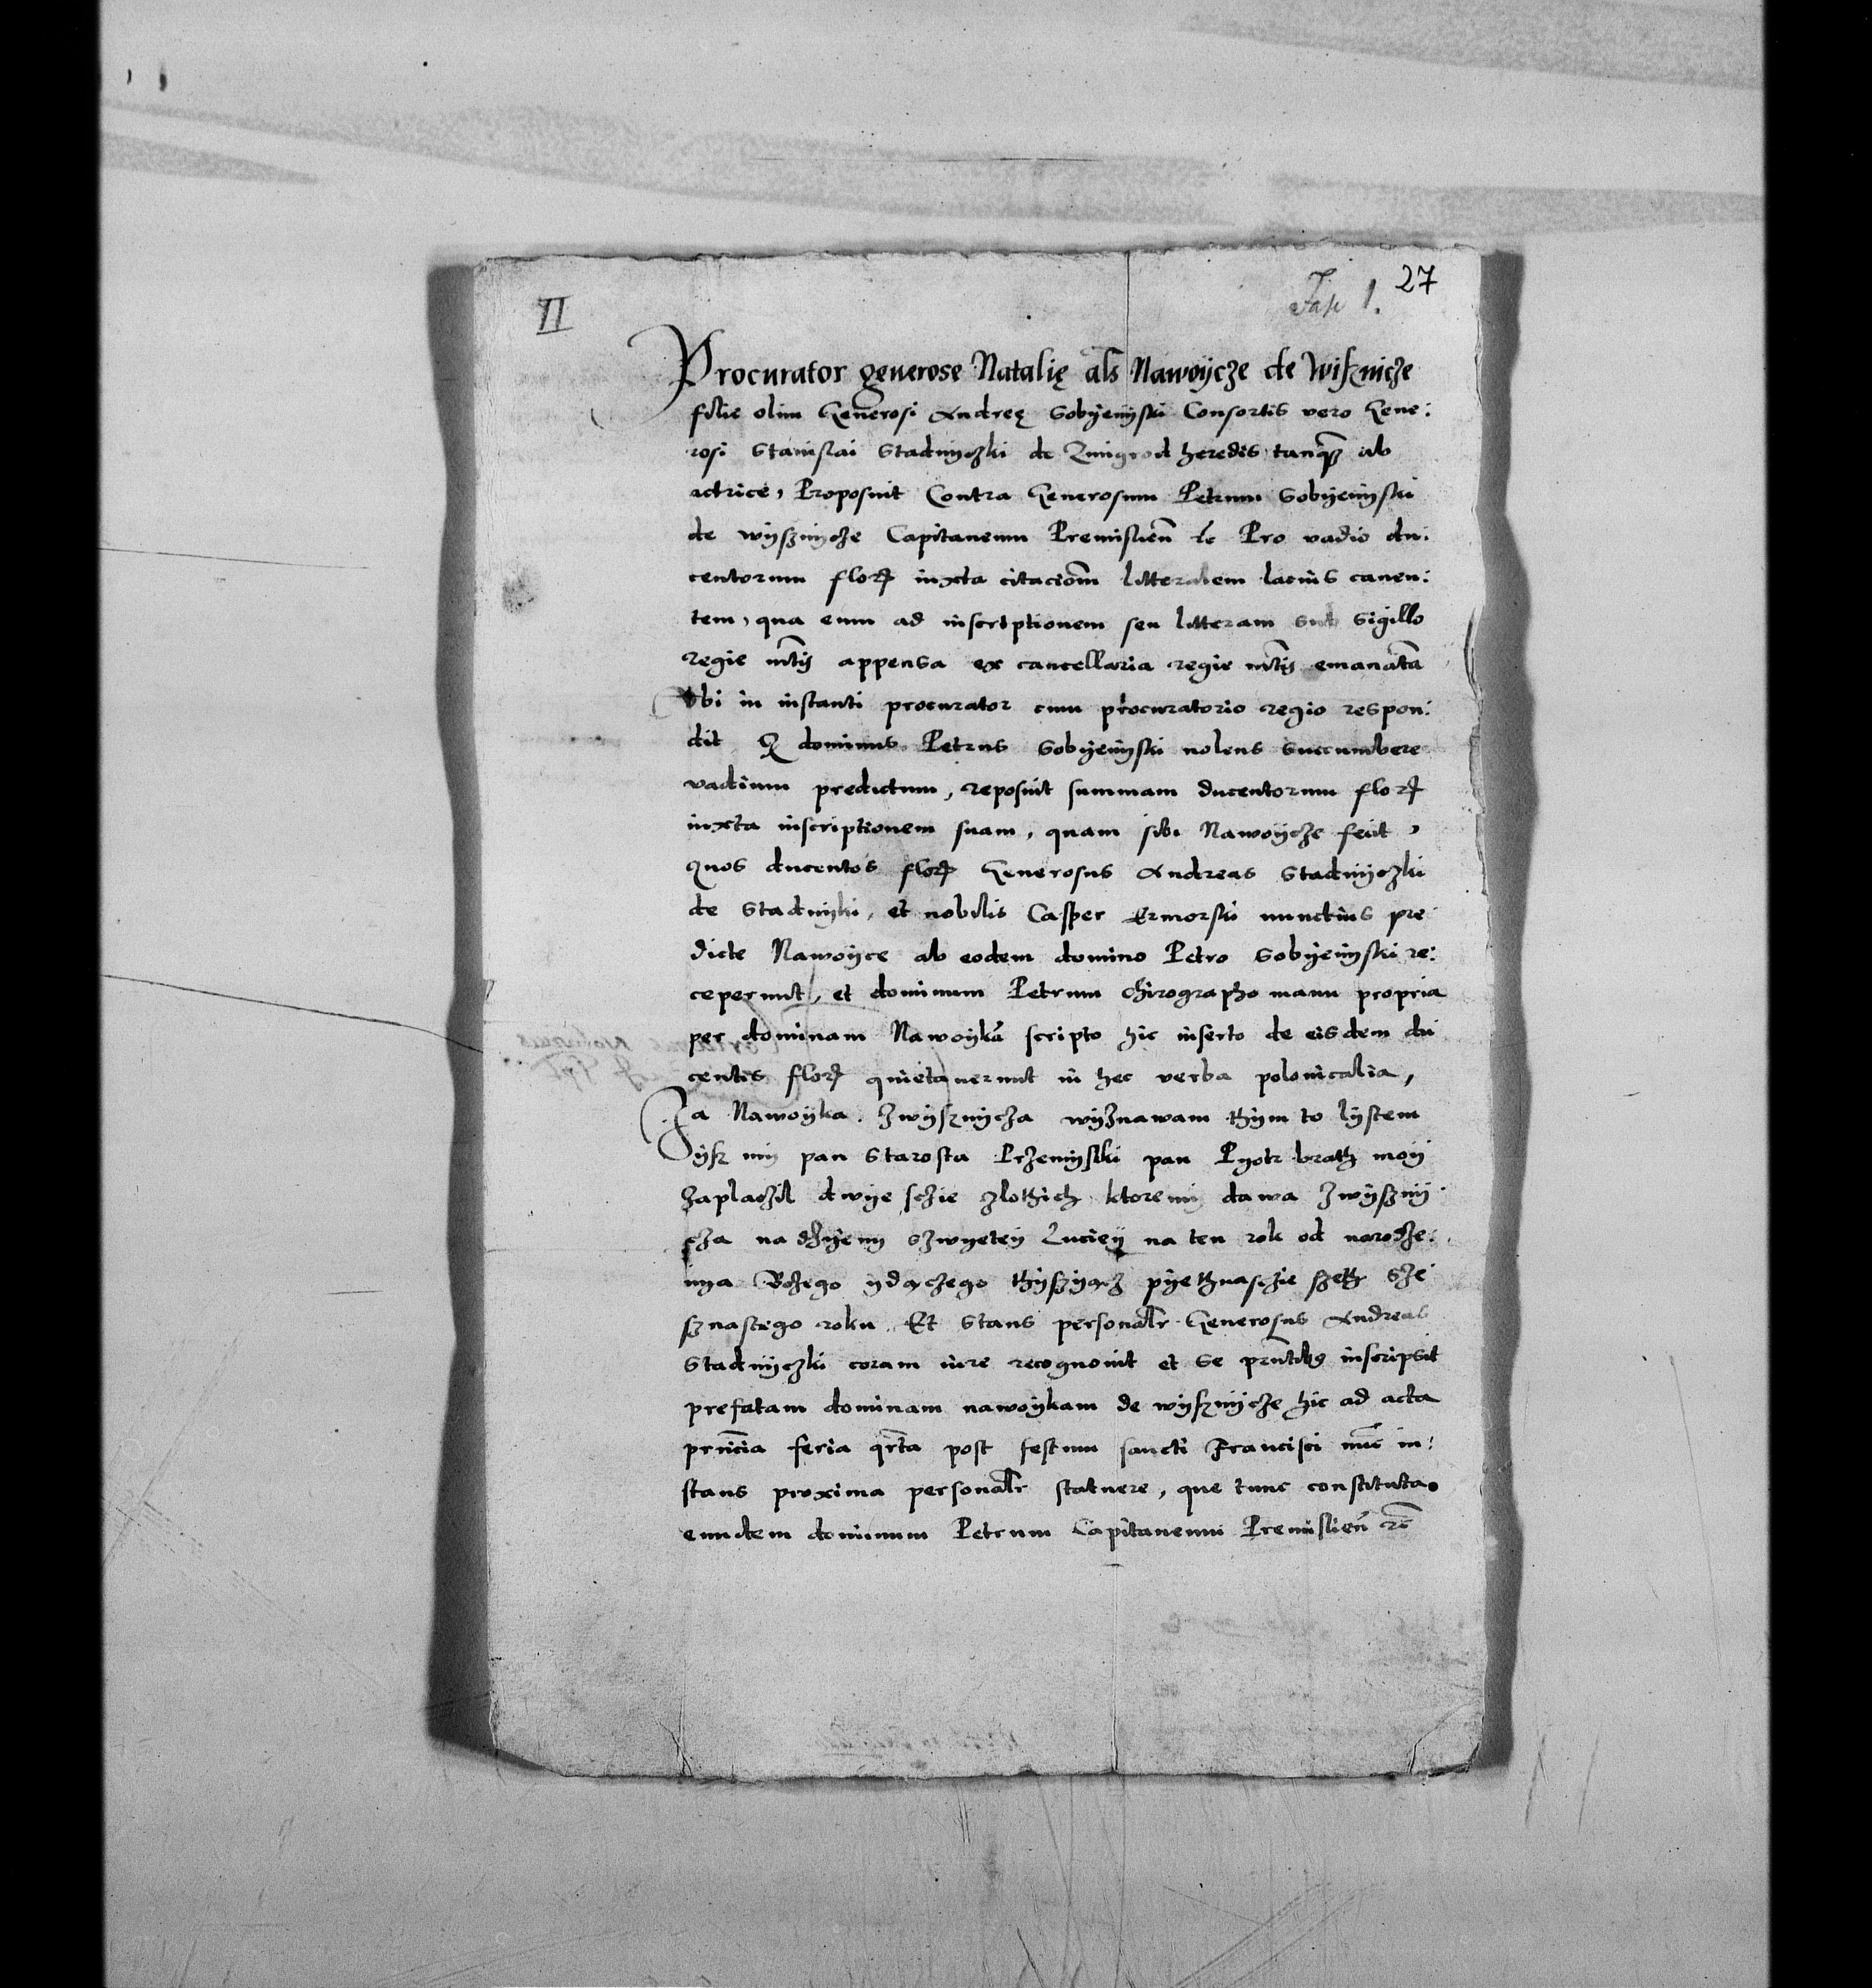 II
27
Fasc 1.
Procurator generose Natalię als Nawoycze de Wisznicze
filie olim Generosi Andreę Sobyenyski Consortis vero Gene:
rosi Stanislai Stadnyczki de Zmigrod heredis tanqz ab
actrice, Proposuit Contra Generosum Petrum Sobyenyski
de wyssnycze Capitaneum Premislien̄ etc Pro vadio du:
centorum flor iuxta citaciōm litteralem lacius canen:
tem, qua eum ad inscriptionem seu litteram sub sigillo
regie mtis appensa ex cancellaria regie mtis emanatā
Vbi in instanti procurator cum procuratorio regio respon:
dit Q dominus Petrus Sobyenyski nolens succumbere
vadium predictum, reposuit summam ducentorum flor
iuxta inscriptionem suam, quam sibi Nawoycze fecit,
Quos ducentos flor Generosus Andreas Stadnyczki
de Stadnyki, et nobilis Casper Ermorski nunctius pre
dicte Nawoyce ab eodem domino Petro Sobyenyski re:
ceperunt, et dominum Petrum chirographo manu propria
per dominam Nawoykā scripto hic inserto de eisdem du
centis flor quietauerunt in hec verba polonicalia,
Ja Nawoyka zwyssnycza wyznawam thym to lystem
ysz my pan Starosta Przemyslki pan Pyotr brath moy
zaplaczil dwye sczie zlothich ktoremy dawa zwyssny
cza na dzyeny szwyetey Luciey na ten rok od narodze:
nya Bozego ydączego thyszyącz pyethnasczie szeth sze
sznastego roku. Et Stans personalr Generosus Andreas
Stadnyczki coram iure recognouit et se prntibs inscripsit
prefatam dominam nawoykam de wyssnycze hic ad acta
prn̄cia feria qrta post festum sancti Francisci nūc in:
stans proxima personalr statuere, que tunc constituta
eundem dominum Petrum Capitaneum Premislien̄